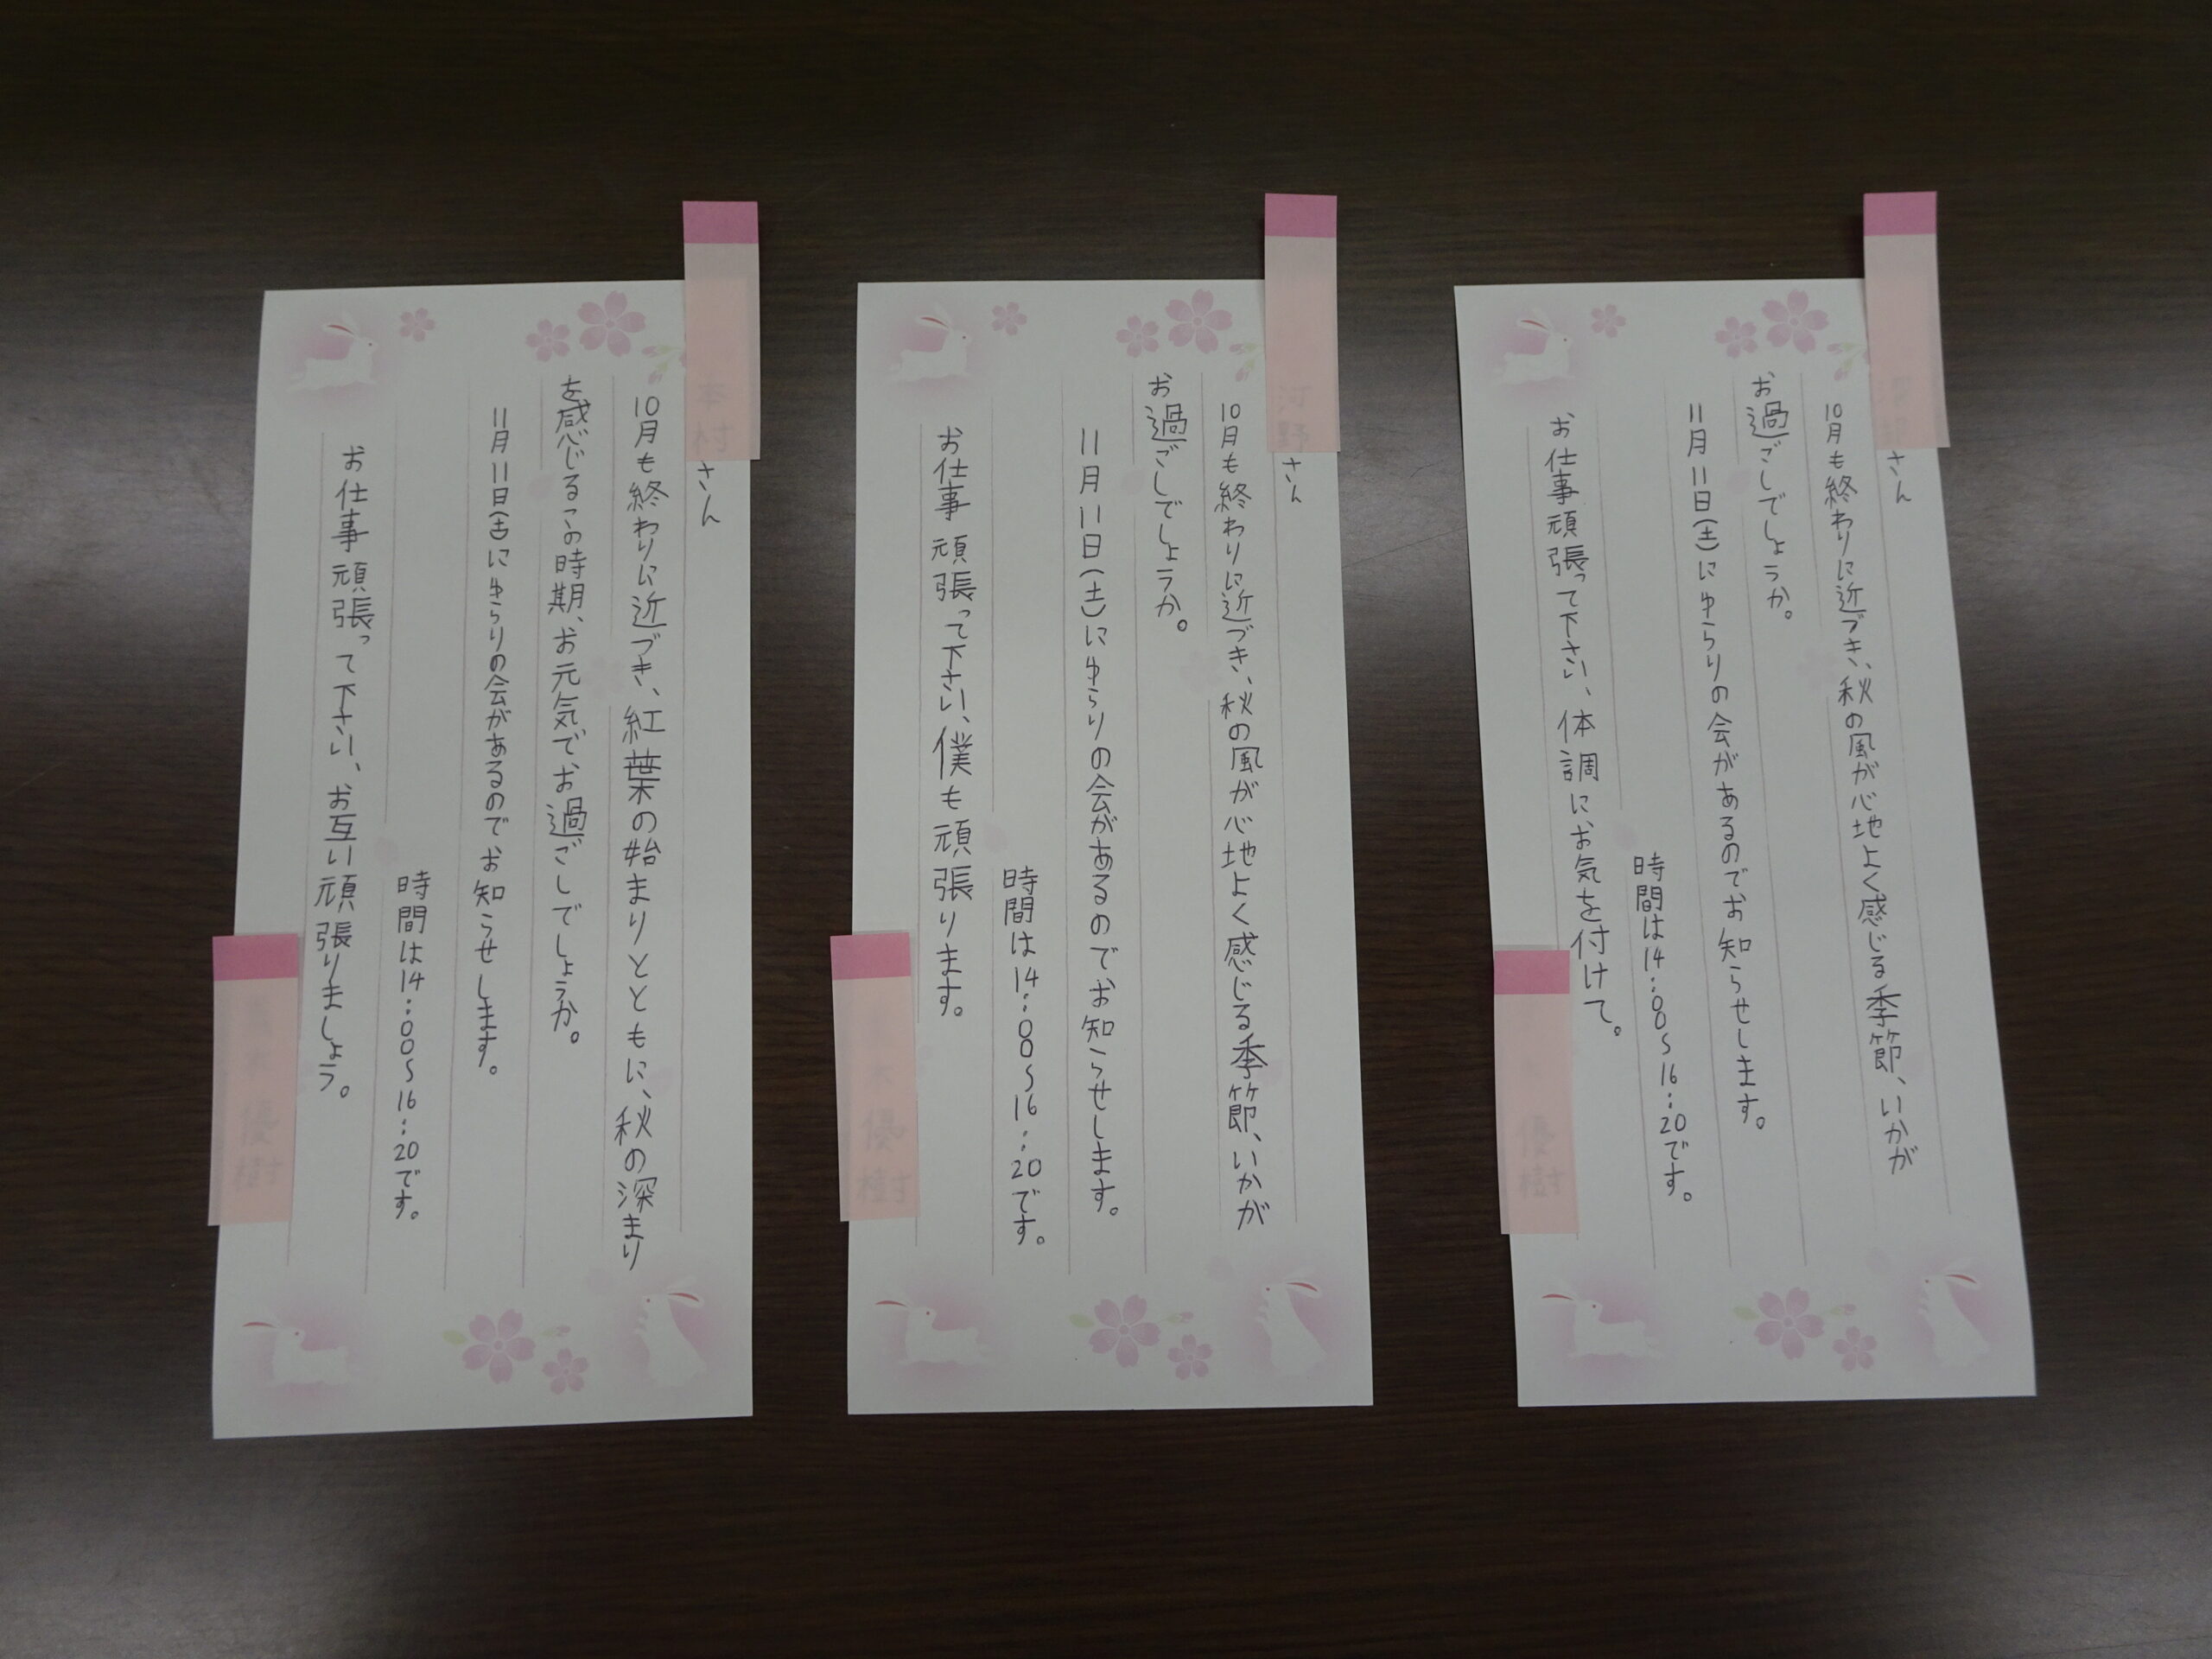 さん
10月も終わりに近づき、秋の風が心地よく感じる季節、いかが
お過ごしでしょうか。
11月11日(土)にゆらりの会があるのでお知らせします。
時間は14:00~16:20です。
お仕事頑張って下さい、体調にお気を付けて。
優樹
河野さん
10月も終わりに近づき、秋の風が心地よく感じる季節、いかが
お過ごしでしょうか。
11月11日(土)にゆらりの会があるのでお知らせします。
時間は14:00~16:20です。
お仕事頑張って下さい、僕も頑張ります。
木優樹
村さん
10月も終わりに近づき、紅葉の始まりとともに、秋の深まり
を感じるこの時期、お元気でお過ごしでしょうか。
11月11日(土)にゆらりの会があるのでお知らせします。
時間は14:00~16:20です。
お仕事頑張って下さい、お互い頑張りましょう。
木優樹